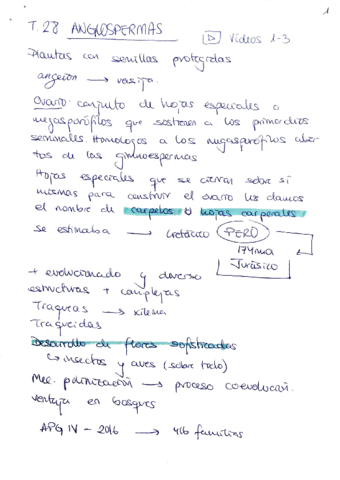 1
T.28 ANGIOSPERMAS
Vídeos 1-3
Plantas con semillas protegidas
angeion → vasija.
Ovario: conjunto de hojas especiales o
megasporófilos que sostienen a los primordios
seminales. Homólogos a los megasporófilos abier-
tos de las gimnoespermas
Hojas especiales que se cierran sobre sí
mismas para construir el ovario les damos
el nombre de carpelos u hojas carpelares
se estimaba → Cretácico PERO
174ma
Jurásico
+ evolucionado y diverso
estructuras + complejas
Traqueas → xilema
Traqueidas
Desarrollo de flores sofisticadas
↳ insectos y aves (sobre todo)
Mec. polinización → proceso coevolucań.
ventaja en bosques
APG IV - 2016 → 416 familias